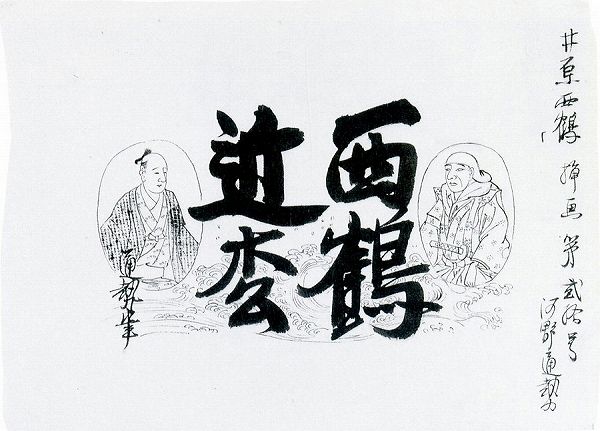 井原西鶴 挿画 第 貳拾号
河野通勢
西鶴
近枩
通勢筆